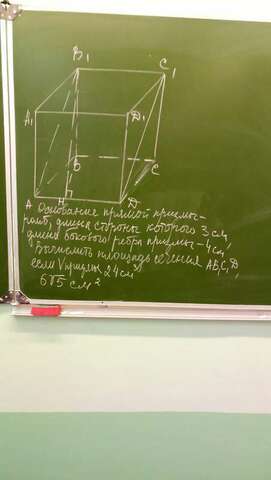 B₁
C₁
A₁
D₁
B
C
H
A
D
Основание прямой призмы –
ромб, длина стороны которого 3 см,
длина бокового ребра призмы – 4 см,
Вычислить площадь сечения AB₁C₁D,
если Vпризмы 24 см³
6√5 см²